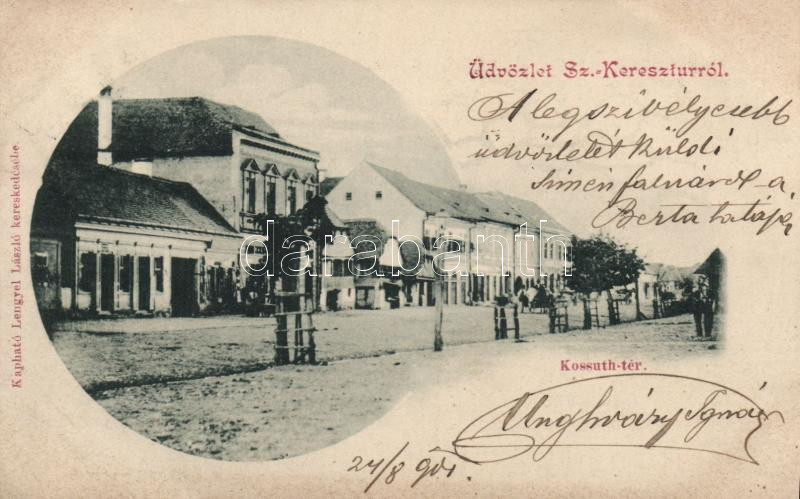 Üdvözlet Sz.-Kereszturról.
A legszívélyesebb
üdvözletét küldi
Siménfalváról a
Berta tatája
Kapható Lengyel László kereskedésébe.
darabanth
Kossuth-tér.
Unghváry Ignác
24/8 901.